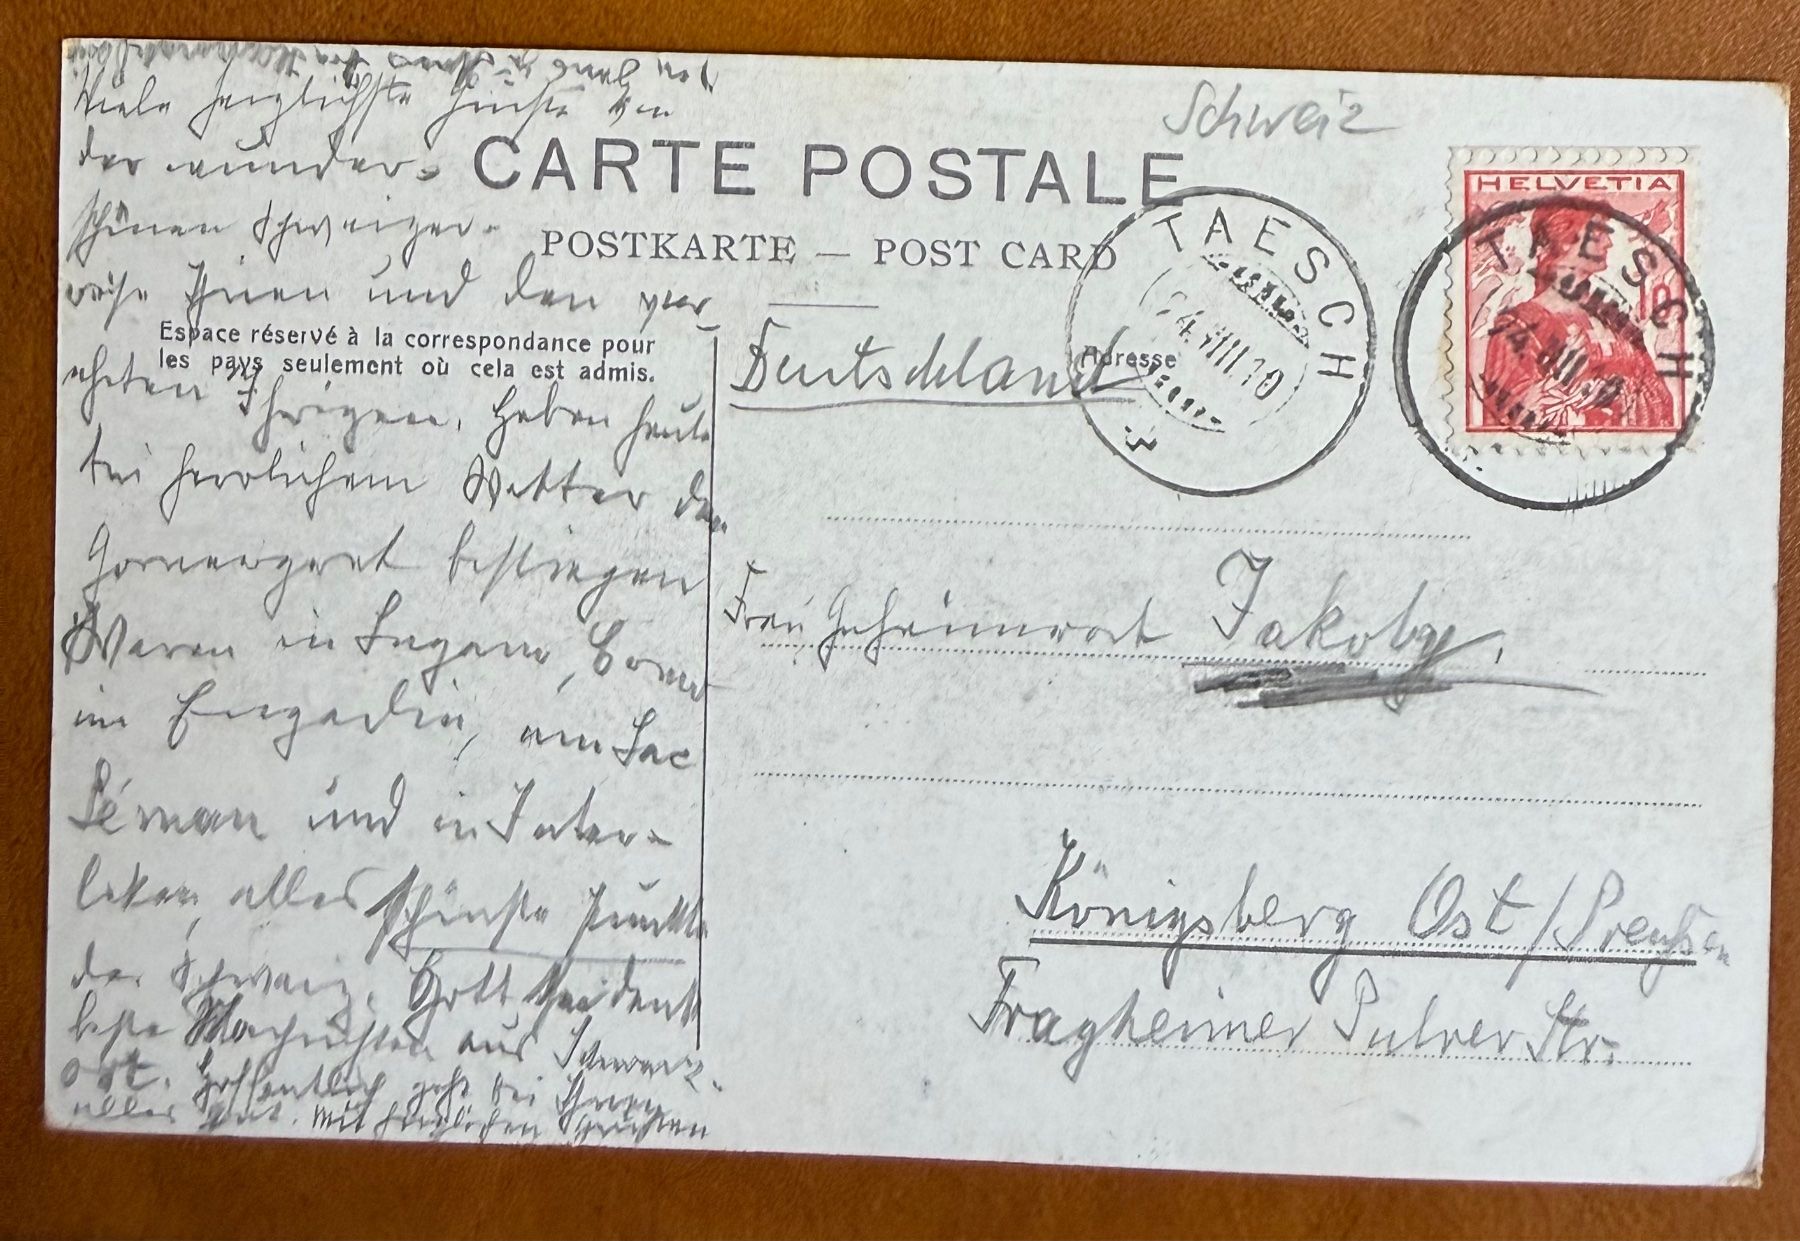 Viele herzlichste Grüße von
der wunder-
schönen Schweizer-
reise Ihnen und den ver-
ehrten Ihrigen. Haben heute
bei herrlichem Wetter den
Gornergrat bestiegen
Waren in Lugano, Como
im Engadin, am Lac
Léman und in Inter-
laken, alles schönste Punkte
der Schweiz. Gott sei dank
beste Nachrichten aus
ort. Hoffentlich geht bei Ihnen
alles gut. Mit herzlichen Grüßen
CARTE POSTALE
POSTKARTE — POST CARD
Espace réservé à la correspondance pour
les pays seulement où cela est admis.
Adresse
Schweiz
HELVETIA
10
TAESCH
24.VIII.10
TAESCH
24.VIII.10
Deutschland
Frau Geheimrat Jakoby,
Königsberg Ost/Preußen
Tragheimer Pulver Str.